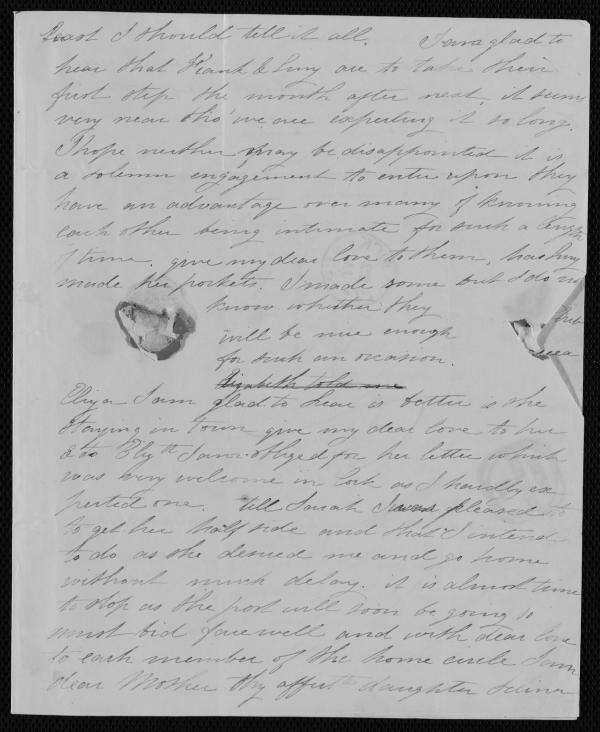 I should tell it all. I am glad to
hear that Frank & Lucy are to take their
first step the month after next, it seems
very near tho' we are expecting it so long.
I hope neither may be disappointed it is
a solemn engagement to enter upon they
have an advantage over many of knowing
each other being intimate for such a length
of time. give my dear love to them, has Lucy
made her pockets. I made some but I do no
know whither they
will be nice enough
for such an occasion.
Elizabeth told me
Eliza I am glad to hear is better is she
staying in town give my dear love to her
& to Elizth I am obliged for her letter which
was very welcome in Cork as I hardly ex
pected one. tell Sarah I was pleased to
to get her half side and that I intend
to do as she desired me and go home
without much delay. it is almost time
to stop as the post will soon be going so
must bid farewell and with dear love
to each member of the home circle I am
dear Mother thy affect daughter Selina